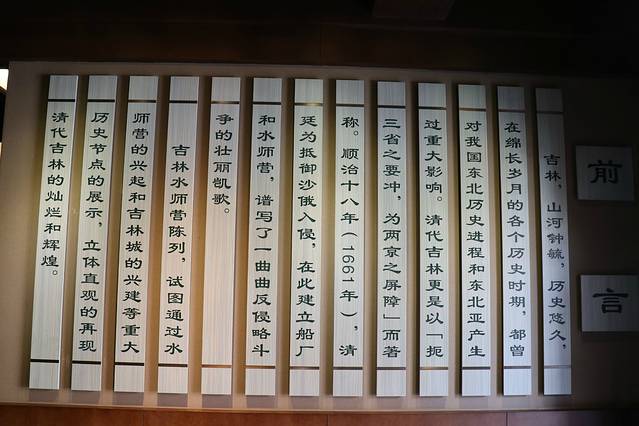 前言
吉林，山河钟毓，历史悠久，
在绵长岁月的各个历史时期，都曾
对我国东北历史进程和东北亚产生
过重大影响。清代吉林更是以「扼
三省之要冲，为两京之屏障」而著
称。顺治十八年（1661年），清
廷为抵御沙俄入侵，在此建立船厂
和水师营，谱写了一曲曲反侵略斗
争的壮丽凯歌。
吉林水师营陈列，试图通过水
师营的兴起和吉林城的兴建等重大
历史节点的展示，立体直观的再现
清代吉林的灿烂和辉煌。